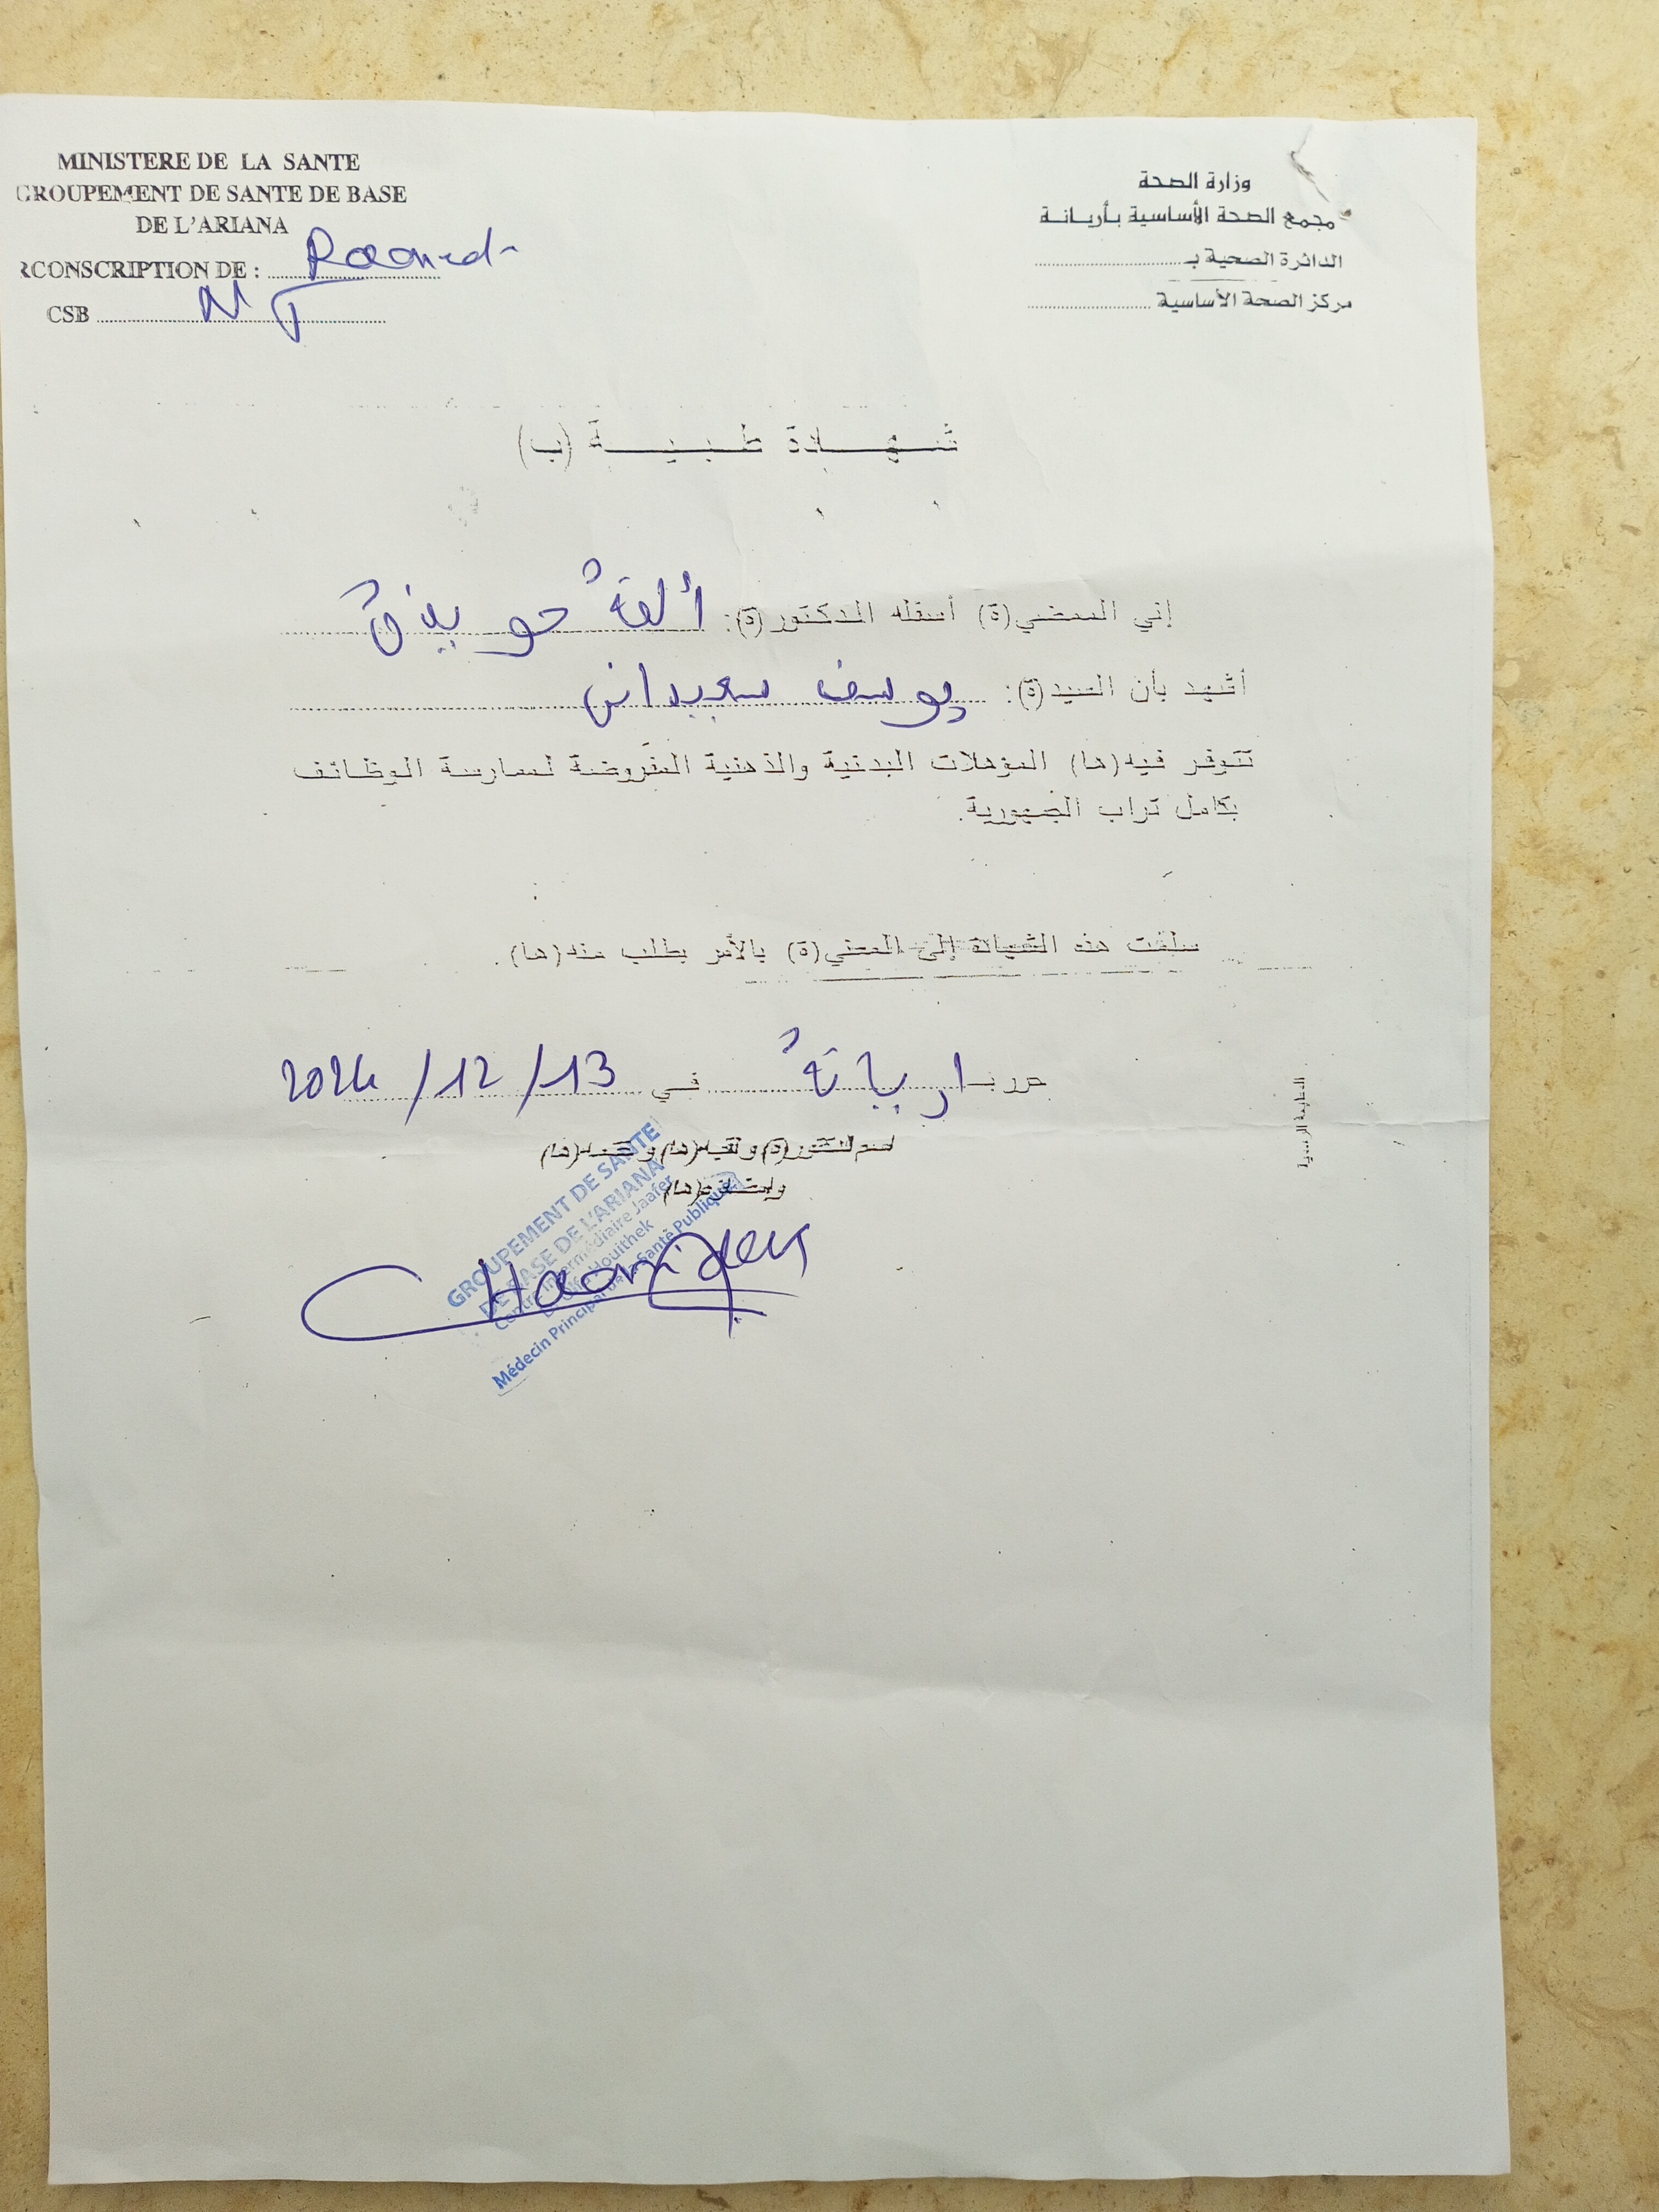 MINISTERE DE LA SANTE
GROUPEMENT DE SANTE DE BASE
DE L'ARIANA
RCONSCRIPTION DE : Raoued
CSB
وزارة الصحة
مجمع الصحة الأساسية بأريانة
الدائرة الصحية بـ
مركز الصحة الأساسية
شهادة طبية (ب)
إني الممضي(ة) أسفله الدكتور(ة): ألفة
أشهد بأن السيد(ة): يوسف سعيداني
تتوفر فيه(ها) المؤهلات البدنية والذهنية المفروضة لممارسة الوظائف
بكامل تراب الجمهورية.
سلمت هذه الشهادة إلى المعني(ة) بالأمر بطلب منه(ها).
حرر بـ اريانة في 2024/12/13
اسم الدكتور(ة) ولقبه(ها) وختمه(ها)
وإمضاؤه(ها)
GROUPEMENT DE SANTE
DE BASE DE L'ARIANA
Centre Intermédiaire Jaafer
Houithek
Médecin Principal de la Santé Publique
المطبعة الرسمية